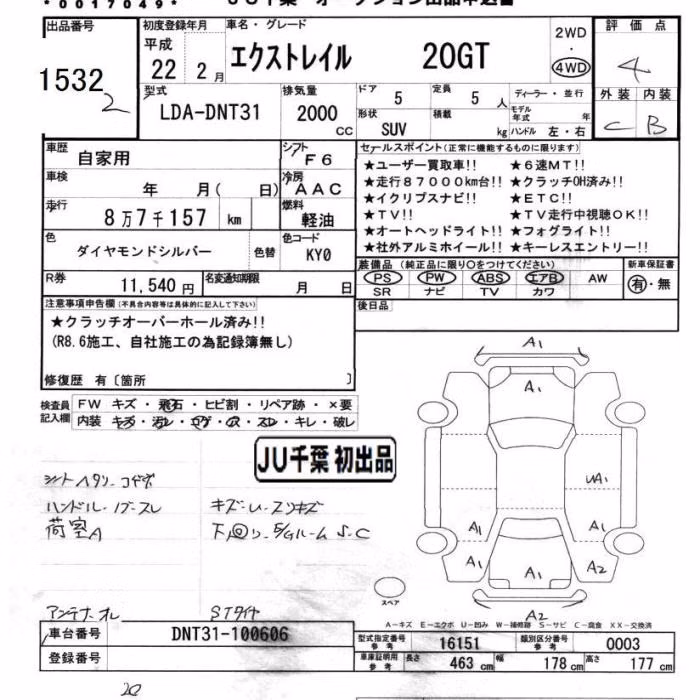 *0017049*
出品番号
1532
2
初度登録年月
平成
22年 2月
車名・グレード
エクストレイル 20GT
2WD
・
4WD
評価点
4
型式
LDA-DNT31
排気量
2000
cc
ドア
5
定員
5人
形状
SUV
積載
kg
ディーラー・並行
モデル年式 年
ハンドル 左・右
外装 内装
C B
車歴
自家用
シフト
F6
車検
年 月( 日)
冷房
AAC
走行
8万7千157 km
燃料
軽油
色
ダイヤモンドシルバー
色替
色コード
KY0
R券
11,540円
名変通知期限
月 日
セールスポイント(正常に機能するものに限ります)
★ユーザー買取車!! ★6速MT!!
★走行87000km台!! ★クラッチOH済み!!
★イクリプスナビ!! ★ETC!!
★TV!! ★TV走行中視聴OK!!
★オートヘッドライト!! ★フォグライト!!
★社外アルミホイール!! ★キーレスエントリー!!
装備品(純正品に限り○をつけてください)
PS PW ABS エアB AW
SR ナビ TV カワ
新車保証書
有・無
後日品
注意事項申告欄(不具合内容等は具体的に記入して下さい)
★クラッチオーバーホール済み!!
(R8.6施工、自社施工の為記録簿無し)
修復歴 有〔箇所 〕
検査員記入欄
FW キズ・飛石・ヒビ割・リペア跡・×要
内装 キズ・汚レ・コゲ・穴・スレ・キレ・破レ
JU千葉 初出品
シートヘタリ・コゲ穴
ハンドル・ノブスレ
荷室A
キズ・U・スリキズ
下回り・E/GルームS・C
アンテナオレ
STタイヤ
A1
A1
UA1
A1
A1
A1
A1
A2
A2
スペア
A-キズ E-エクボ U-凹み W-補修跡 S-サビ C-腐食 XX-交換済
車台番号
DNT31-100606
登録番号
型式指定番号
参考
16151
類別区分番号
参考
0003
車庫証明用
参考
長さ 463cm
幅 178cm
高さ 177cm